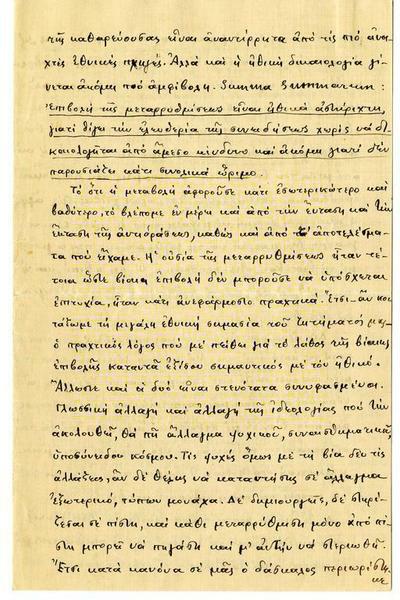 τῆς καθαρεύουσας εἶναι ἀναντίρρητα ἀπὸ τὶς πιὸ ἀνοι-
χτὲς ἐθνικὲς πληγές. Ἀλλὰ καὶ ἡ ἠθικὴ δικαιολογία γί-
νεται ἀκόμη πιὸ ἀμφίβολη. Summa Summarum:
Ἐπιβολὴ τῆς μεταρρυθμίσεως εἶναι ἠθικὰ ἀστήριχτη,
γιατὶ θίγει τὴν ἐλευθερία τῆς συνειδήσεως χωρὶς νὰ δι-
καιολογῆται ἀπὸ ἄμεσο κίνδυνο καὶ ἀκόμη γιατὶ δὲν
παρουσιάζει κάτι συνολικὰ ὥριμο.
Τὸ ὅτι ἡ μεταβολὴ ἀφοροῦσε κάτι ἐσωτερικώτερο καὶ
βαθύτερο, τὸ βλέπομε ἐν μέρει καὶ ἀπὸ τὴν ἔνταση καὶ τὴν
ἔκταση τῆς ἀντιδράσεως, καθὼς καὶ ἀπὸ τ' ἀποτελέσμα-
τα ποὺ εἴχαμε. Ἡ οὐσία τῆς μεταρρυθμίσεως ἦταν τέ-
τοια ὥστε βίαιη ἐπιβολὴ δὲν μποροῦσε νὰ ὑπόσχεται
ἐπιτυχία, ἦταν κάτι ἀνεφάρμοστο πρακτικά. Ἔτσι - ἂν κοι-
τάξωμε τὴ μεγάλη ἐθνικὴ σημασία τοῦ ζητήματός μας -
ὁ πρακτικὸς λόγος ποὺ μὲ πείθει γιὰ τὸ λάθος τῆς βίαιης
ἐπιβολῆς καταντᾶ ἐξ ἴσου σημαντικὸς μὲ τὸν ἠθικό.
Ἄλλωστε καὶ οἱ δυὸ εἶναι στενότατα συνυφασμένοι.
Γλωσσικὴ ἀλλαγὴ καὶ ἀλλαγὴ τῆς ἰδεολογίας ποὺ τὴν
ἀκολουθεῖ, θὰ πῆ ἄλλαγμα ψυχικοῦ, συναισθηματικοῦ,
ὑποσυνείδου κόσμου. Τὶς ψυχὲς ὅμως μὲ τὴ βία δὲν τὶς
ἀλλάζεις, ἂν δὲ θέλης νὰ καταντήσης σὲ ἄλλαγμα
ἐξωτερικό, τύπων μονάχα. Δὲ δημιουργεῖς, δὲ στηρί-
ζεσαι σὲ πίστη, καὶ κάθε μεταρρύθμιση μόνο ἀπὸ πί-
στη μπορεῖ νὰ πηγάση καὶ μ' αὐτὴν νὰ στεριωθῆ.
Ἔτσι κατὰ κανόνα σὲ μᾶς ὁ δάσκαλος περιωρίστη-
κε